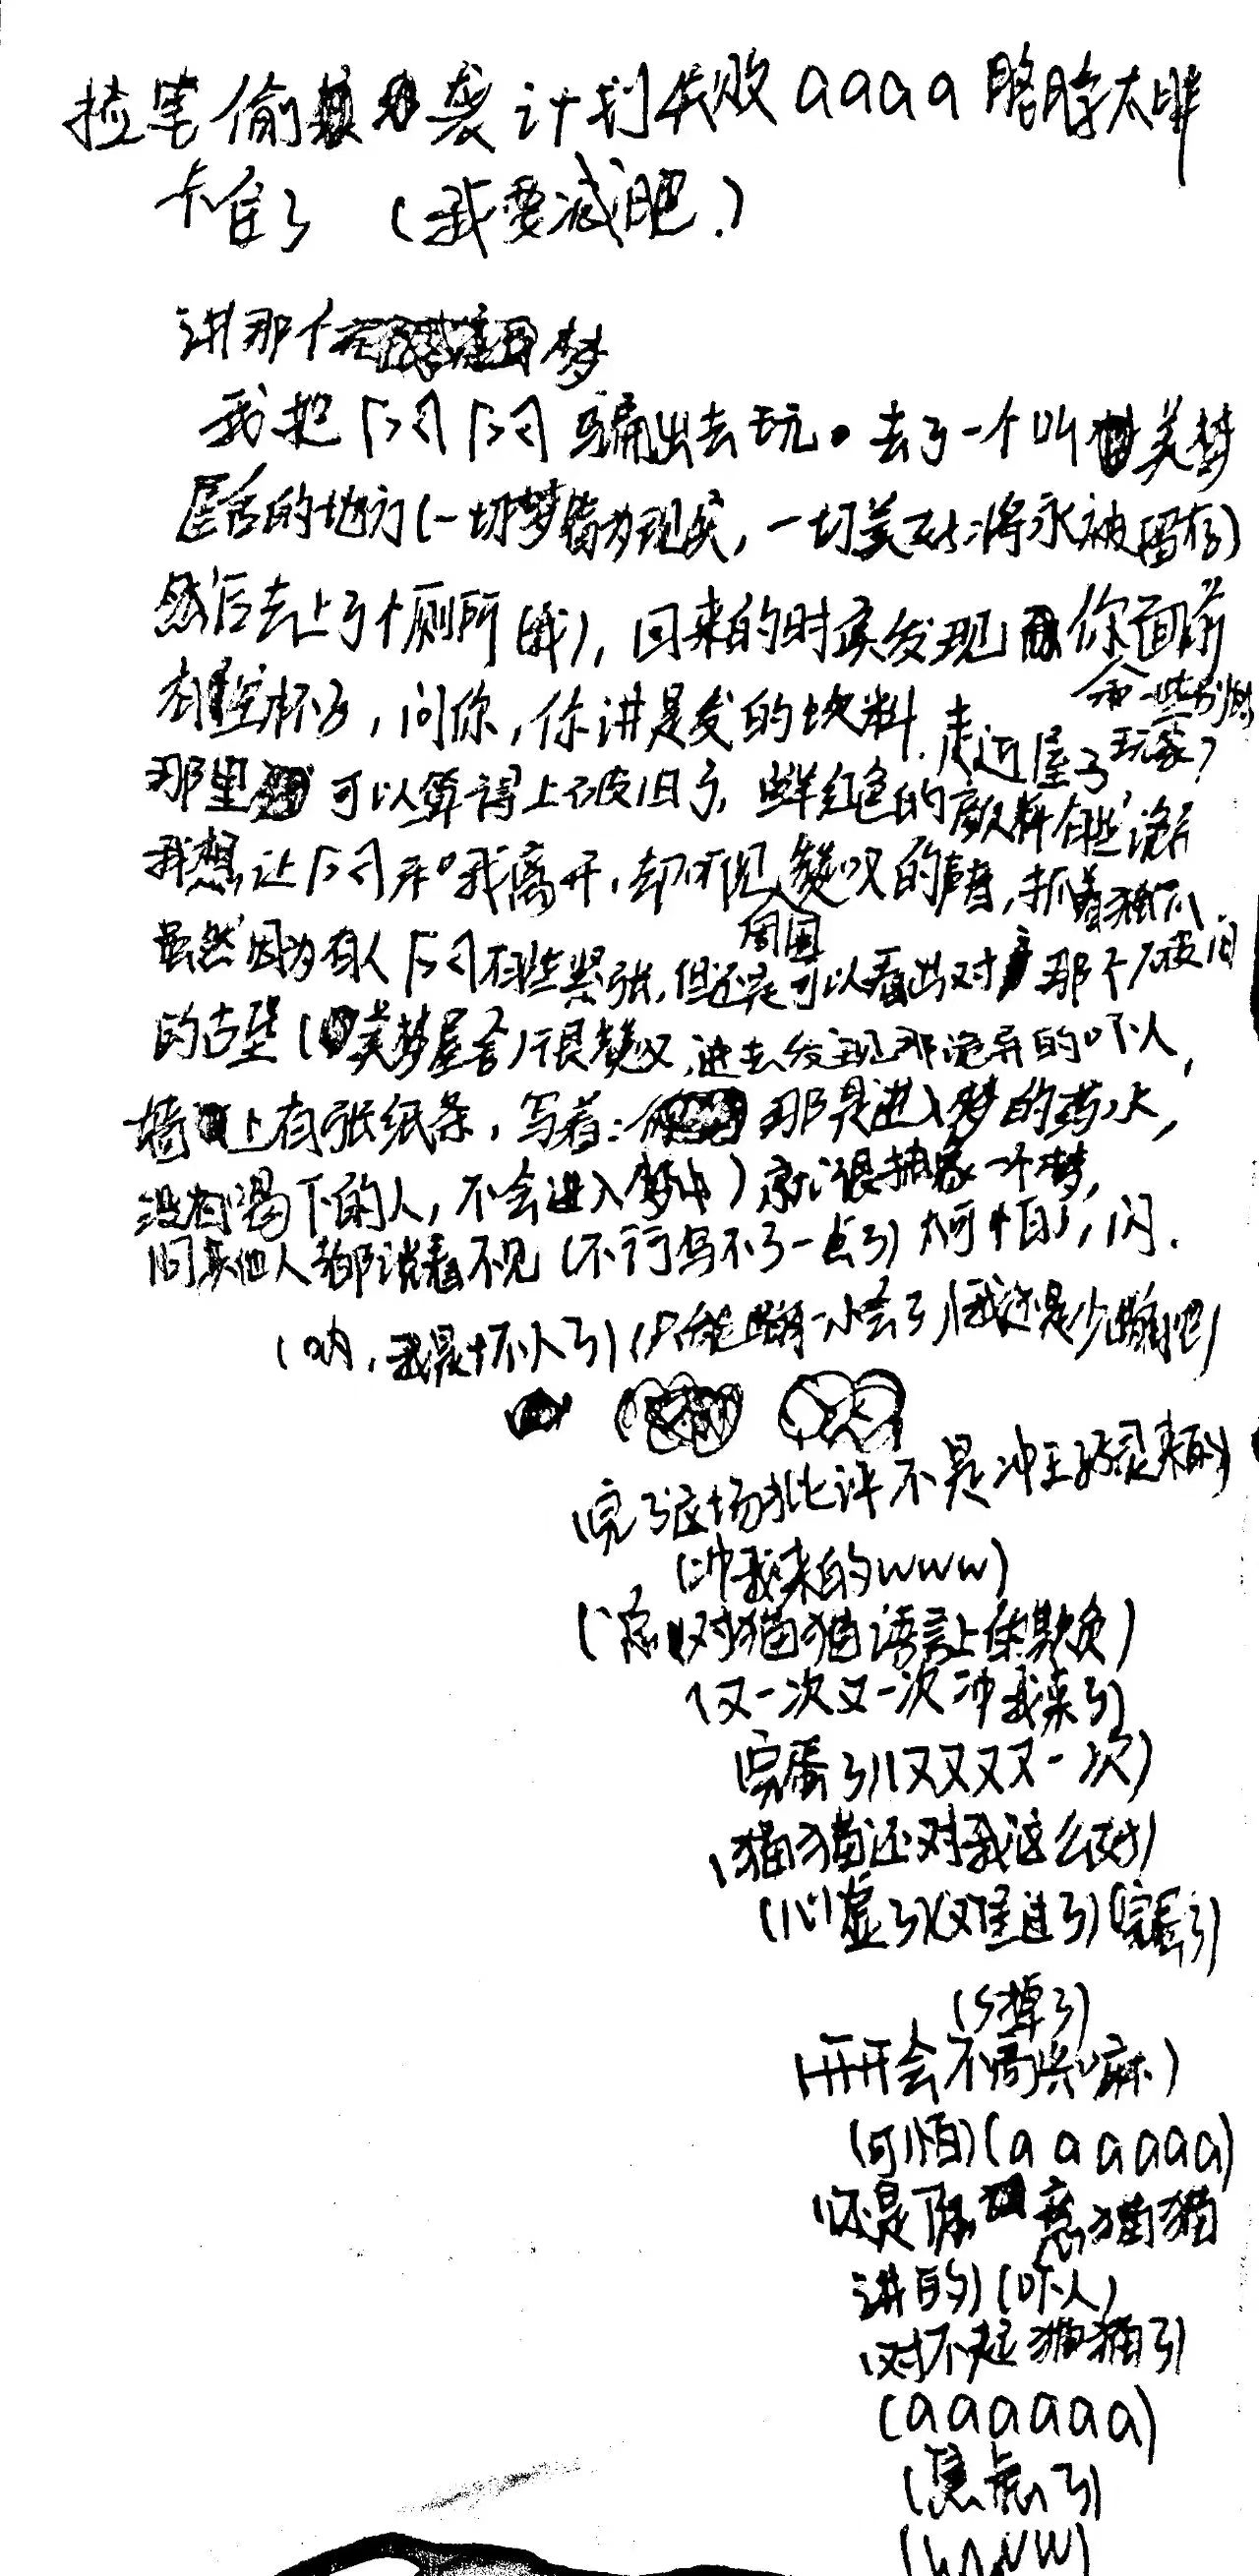 偷袭计划失败aaaa胳膊太胖
卡住了（我要减肥.）
讲那个梦
我把闪闪骗出去玩。去了一个叫美梦
屋舍的地方（一切梦皆为现实，一切美好将永被留存）
然后去上了个厕所（我），回来的时候发现你面前
有空杯子，问你，你讲是发的饮料.走近屋子
和一些别的玩家）
那里可以算得上破旧了，鲜红色的颜料有些诡异
我想让闪闪和我离开，却听见赞叹的声音，抓着猫爪
周围
虽然因为有人闪闪有些紧张，但还是可以看出对那个破旧
的古堡（美梦屋舍）很赞叹，进去发现那诡异的吓人，
墙上有张纸条，写着：那是进入梦的药水，
没有喝下的人，不会进入梦中）就很抽象一个梦，
问其他人都说看不见（不行写不了一点了）太可怕了，闪.
（呐，我是坏人了）（只能一小会了）（我还是少吧）
（完了这场批评不是冲王来的）
（冲我来的www）
（对猫猫语言上的欺负）
（又一次又一次冲我来了）
（完蛋了）（又又又又一次）
（猫猫还对我这么好）
（心虚了）（又难过了）（完蛋了）
（s掉了）
（会不高兴嘛）
（可怕）（aaaaaa）
（还是猫猫
讲的）（吓人）
（对不起猫猫了）
（aaaaaa）
（焦虑了）
（www）